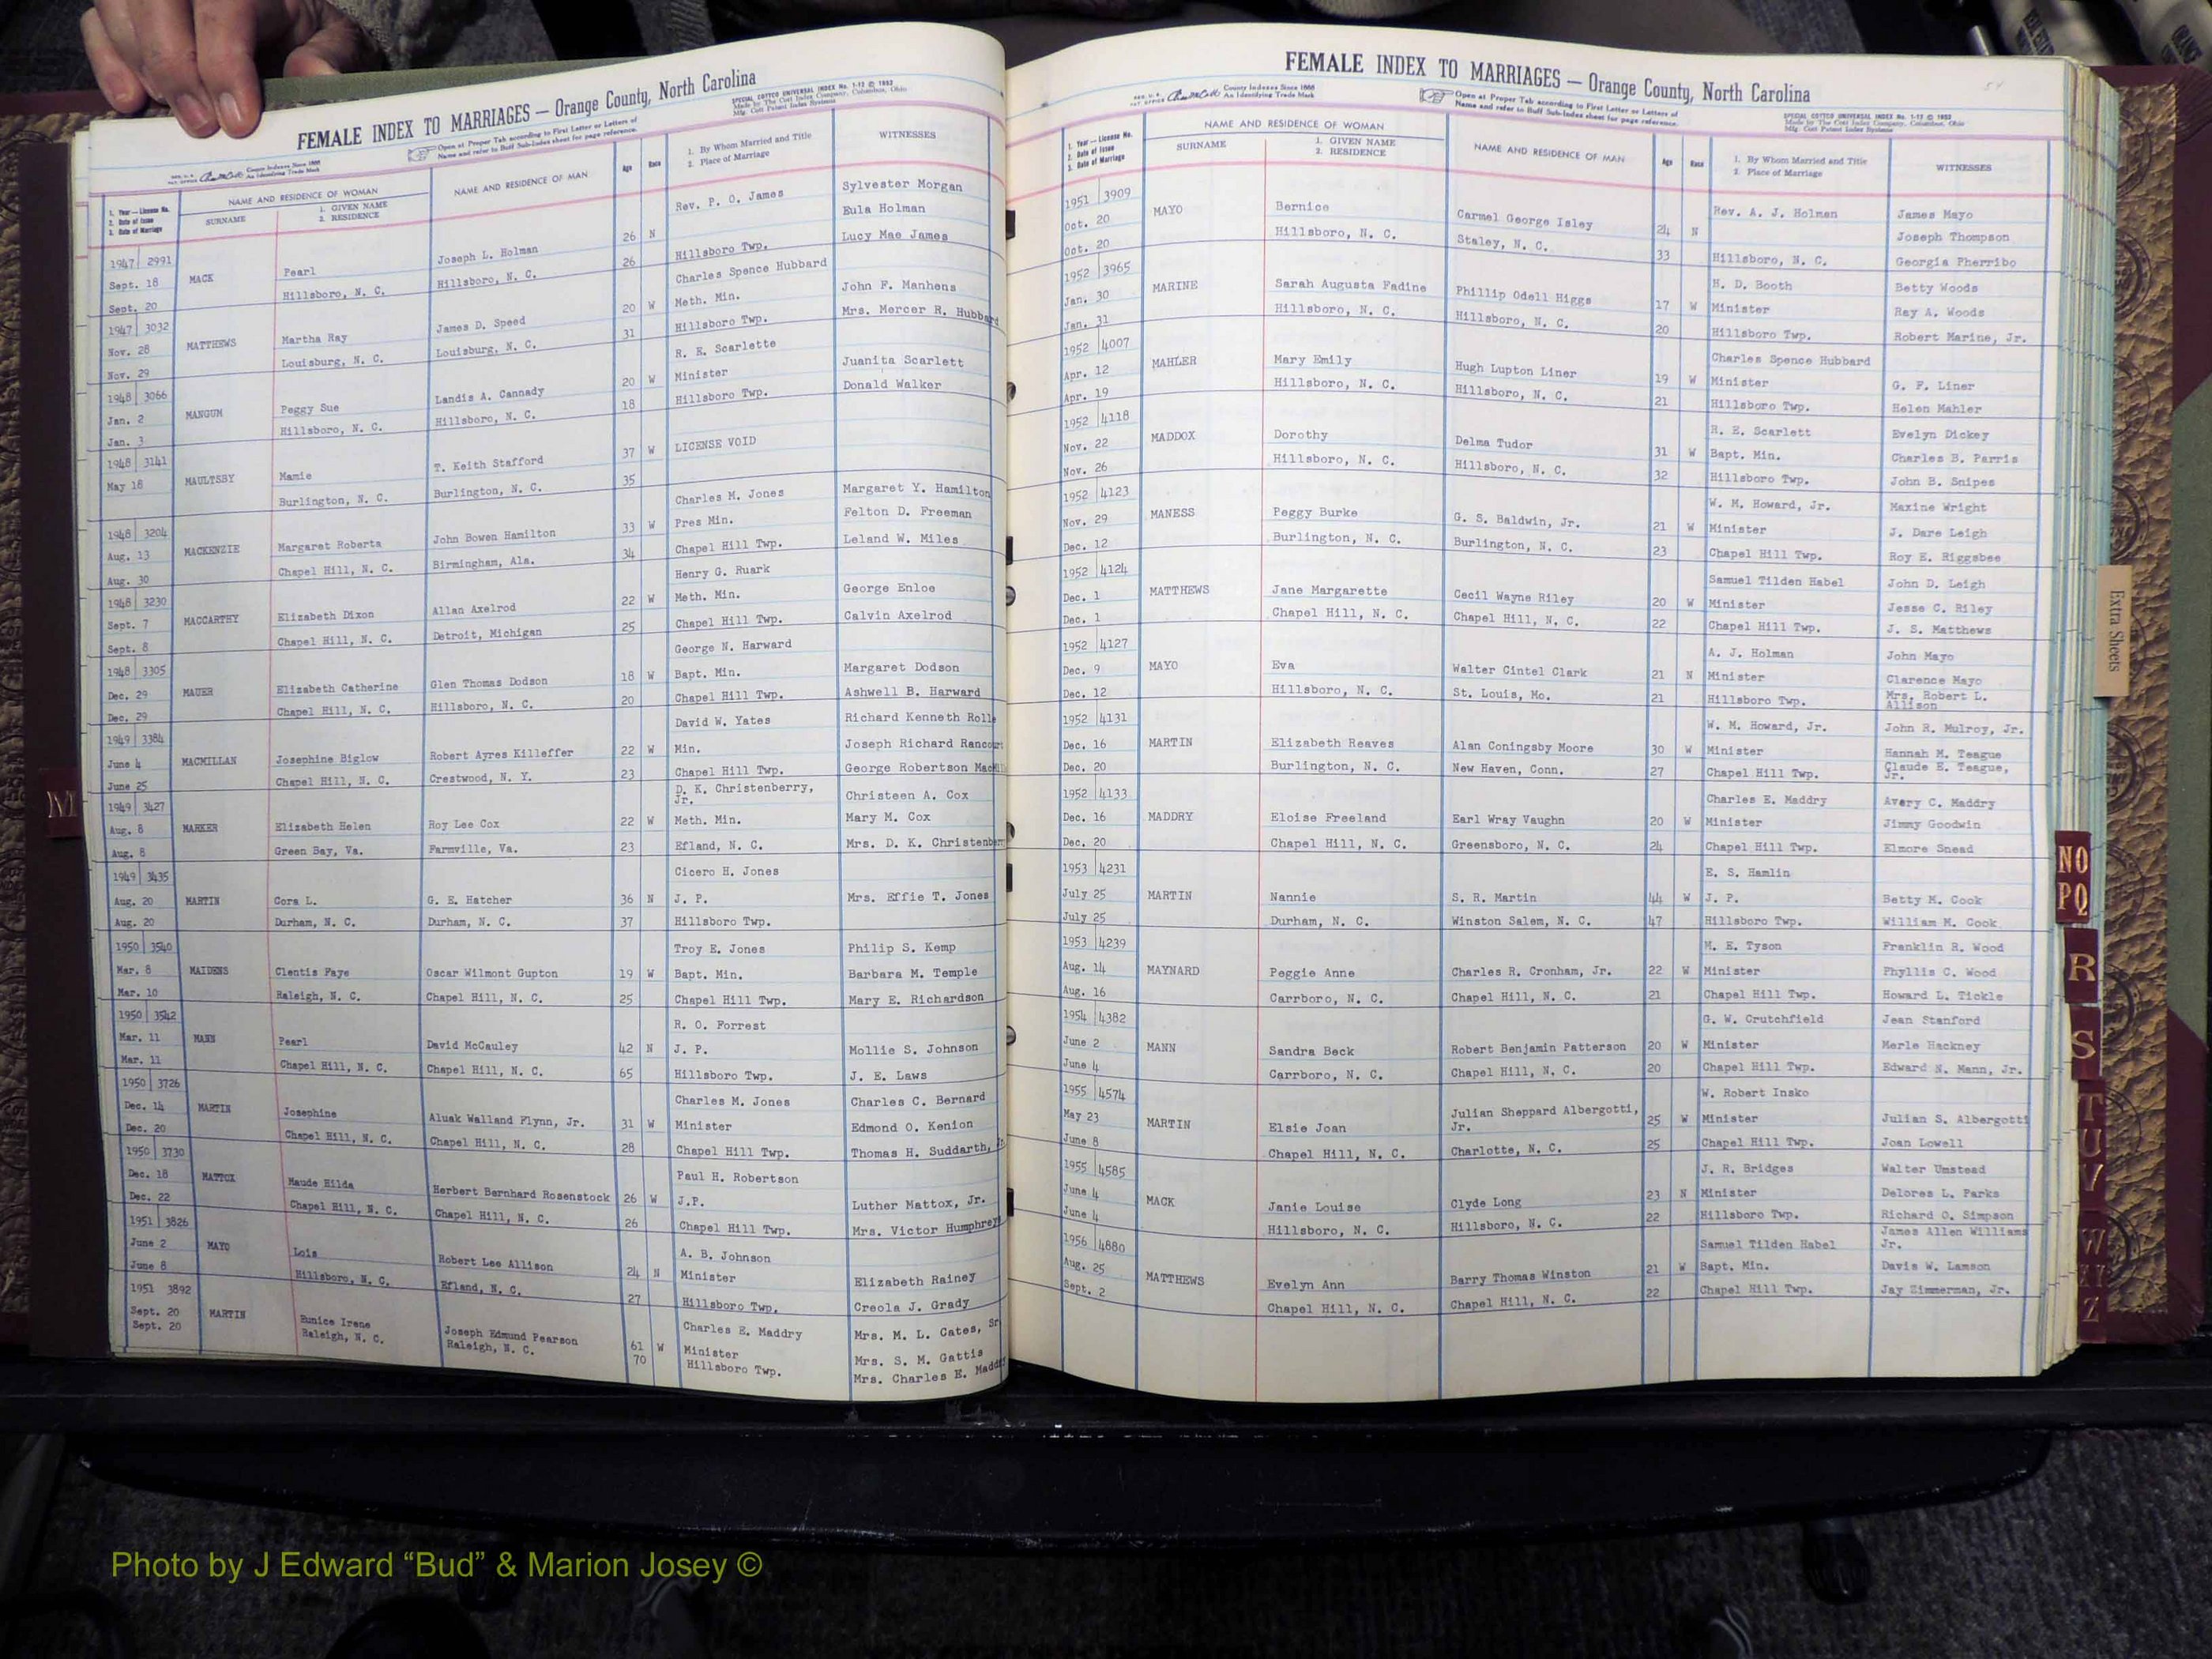 FEMALE INDEX TO MARRIAGES — Orange County, North Carolina
County Indexes Since 1888
An Identifying Trade Mark
Open at Proper Tab according to First Letter or Letters of
Name and refer to Buff Sub-Index sheet for page reference.
SPECIAL COTTCO UNIVERSAL INDEX No. 1-12 © 1952
Made by The Cott Index Company, Columbus, Ohio
Mfg. Cott Patent Index Systems
1. Year — License No.
2. Date of Issue
3. Date of Marriage
NAME AND RESIDENCE OF WOMAN
SURNAME
1. GIVEN NAME
2. RESIDENCE
NAME AND RESIDENCE OF MAN
Age
Race
1. By Whom Married and Title
2. Place of Marriage
WITNESSES
1947 2991 Rev. P. O. James Sylvester Morgan
Sept. 18 MACK Pearl Joseph L. Holman 26 N Eula Holman
Sept. 20 Hillsboro, N. C. Hillsboro, N. C. 26 Hillsboro Twp. Lucy Mae James
1947 3032 Charles Spence Hubbard
Nov. 28 MATTHEWS Martha Ray James D. Speed 20 W Meth. Min. John F. Manhens
Nov. 29 Louisburg, N. C. Louisburg, N. C. 31 Hillsboro Twp. Mrs. Mercer R. Hubbard
1948 3066 R. E. Scarlette
Jan. 2 MANGUM Peggy Sue Landis A. Cannady 20 W Minister Juanita Scarlett
Jan. 3 Hillsboro, N. C. Hillsboro, N. C. 18 Hillsboro Twp. Donald Walker
1948 3141
May 18 MAULTSBY Mamie T. Keith Stafford 37 W LICENSE VOID
Burlington, N. C. Burlington, N. C. 35
1948 3204 Charles M. Jones Margaret Y. Hamilton
Aug. 13 MACKENZIE Margaret Roberta John Bowen Hamilton 33 W Pres Min. Felton D. Freeman
Aug. 30 Chapel Hill, N. C. Birmingham, Ala. 34 Chapel Hill Twp. Leland W. Miles
1948 3230 Henry G. Ruark
Sept. 7 MACCARTHY Elizabeth Dixon Allan Axelrod 22 W Meth. Min. George Enloe
Sept. 8 Chapel Hill, N. C. Detroit, Michigan 25 Chapel Hill Twp. Calvin Axelrod
1948 3305 George N. Harward
Dec. 29 MAUER Elizabeth Catherine Glen Thomas Dodson 18 W Bapt. Min. Margaret Dodson
Dec. 29 Chapel Hill, N. C. Hillsboro, N. C. 20 Chapel Hill Twp. Ashwell B. Harward
1949 3384 David W. Yates Richard Kenneth
June 4 MACMILLAN Josephine Biglow Robert Ayres Killeffer 22 W Min. Joseph Richard
June 25 Chapel Hill, N. C. Crestwood, N. Y. 23 Chapel Hill Twp. George Robertson
1949 3427 D. K. Christenberry, Jr. Christeen A. Cox
Aug. 8 MARKER Elizabeth Helen Roy Lee Cox 22 W Meth. Min. Mary M. Cox
Aug. 8 Green Bay, Va. Farmville, Va. 23 Efland, N. C. Mrs. D. K.
1949 3435 Cicero H. Jones
Aug. 20 MARTIN Cora L. G. E. Hatcher 36 N J. P. Mrs. Effie T. Jones
Aug. 20 Durham, N. C. Durham, N. C. 37 Hillsboro Twp.
1950 3540 Troy E. Jones Philip S. Kemp
Mar. 8 MAIDENS Clentis Faye Oscar Wilmont Gupton 19 W Bapt. Min. Barbara M. Temple
Mar. 10 Raleigh, N. C. Chapel Hill, N. C. 25 Chapel Hill Twp. Mary E. Richardson
1950 3542 R. O. Forrest
Mar. 11 MANN Pearl David McCauley 42 N J. P. Mollie S. Johnson
Mar. 11 Chapel Hill, N. C. Chapel Hill, N. C. 65 Hillsboro Twp. J. E. Laws
1950 3726 Charles M. Jones Charles C. Bernard
Dec. 14 MARTIN Josephine Aluak Walland Flynn, Jr. 31 W Minister Edmond O. Kenion
Dec. 20 Chapel Hill, N. C. Chapel Hill, N. C. 28 Chapel Hill Twp. Thomas H. Suddarth,
1950 3730 Paul H. Robertson
Dec. 18 MATTOX Maude Hilda Herbert Bernhard Rosenstock 26 W J.P. Luther Mattox, Jr.
Dec. 22 Chapel Hill, N. C. Chapel Hill, N. C. 26 Chapel Hill Twp. Mrs. Victor Humphrey
1951 3826 A. B. Johnson
June 2 MAYO Lois Robert Lee Allison 24 N Minister Elizabeth Rainey
June 8 Hillsboro, N. C. Efland, N. C. 27 Hillsboro Twp. Creola J. Grady
1951 3892 Charles E. Maddry Mrs. M. L. Cates, Sr
Sept. 20 MARTIN Eunice Irene Joseph Edmund Pearson 61 W Minister Mrs. S. M. Gattis
Sept. 20 Raleigh, N. C. Raleigh, N. C. 70 Hillsboro Twp. Mrs. Charles E. Maddry
FEMALE INDEX TO MARRIAGES — Orange County, North Carolina
County Indexes Since 1888
An Identifying Trade Mark
Open at Proper Tab according to First Letter or Letters of
Name and refer to Buff Sub-Index sheet for page reference.
SPECIAL COTTCO UNIVERSAL INDEX No. 1-12 © 1952
Made by The Cott Index Company, Columbus, Ohio
Mfg. Cott Patent Index Systems
1. Year — License No.
2. Date of Issue
3. Date of Marriage
NAME AND RESIDENCE OF WOMAN
SURNAME
1. GIVEN NAME
2. RESIDENCE
NAME AND RESIDENCE OF MAN
Age
Race
1. By Whom Married and Title
2. Place of Marriage
WITNESSES
1951 3909 Rev. A. J. Holman James Mayo
Oct. 20 MAYO Bernice Carmel George Isley 24 N Joseph Thompson
Oct. 20 Hillsboro, N. C. Staley, N. C. 33 Hillsboro, N. C. Georgia Pherribo
1952 3965 H. D. Booth Betty Woods
Jan. 30 MARINE Sarah Augusta Fadine Phillip Odell Higgs 17 W Minister Ray A. Woods
Jan. 31 Hillsboro, N. C. Hillsboro, N. C. 20 Hillsboro Twp. Robert Marine, Jr.
1952 4007 Charles Spence Hubbard
Apr. 12 MAHLER Mary Emily Hugh Lupton Liner 19 W Minister G. F. Liner
Apr. 19 Hillsboro, N. C. Hillsboro, N. C. 21 Hillsboro Twp. Helen Mahler
1952 4118 R. E. Scarlett Evelyn Dickey
Nov. 22 MADDOX Dorothy Delma Tudor 31 W Bapt. Min. Charles B. Parris
Nov. 26 Hillsboro, N. C. Hillsboro, N. C. 32 Hillsboro Twp. John B. Snipes
1952 4123 W. M. Howard, Jr. Maxine Wright
Nov. 29 MANESS Peggy Burke G. S. Baldwin, Jr. 21 W Minister J. Dare Leigh
Dec. 12 Burlington, N. C. Burlington, N. C. 23 Chapel Hill Twp. Roy E. Riggsbee
1952 4124 Samuel Tilden Habel John D. Leigh
Dec. 1 MATTHEWS Jane Margarette Cecil Wayne Riley 20 W Minister Jesse C. Riley
Dec. 1 Chapel Hill, N. C. Chapel Hill, N. C. 22 Chapel Hill Twp. J. S. Matthews
1952 4127 A. J. Holman John Mayo
Dec. 9 MAYO Eva Walter Cintel Clark 21 N Minister Clarence Mayo
Dec. 12 Hillsboro, N. C. St. Louis, Mo. 21 Hillsboro Twp. Mrs. Robert L. Allison
1952 4131 W. M. Howard, Jr. John R. Mulroy, Jr.
Dec. 16 MARTIN Elizabeth Reaves Alan Coningsby Moore 30 W Minister Hannah M. Teague
Dec. 20 Burlington, N. C. New Haven, Conn. 27 Chapel Hill Twp. Claude E. Teague, Jr.
1952 4133 Charles E. Maddry Avery C. Maddry
Dec. 16 MADDRY Eloise Freeland Earl Wray Vaughn 20 W Minister Jimmy Goodwin
Dec. 20 Chapel Hill, N. C. Greensboro, N. C. 24 Chapel Hill Twp. Elmore Snead
1953 4231 E. S. Hamlin
July 25 MARTIN Nannie S. R. Martin 44 W J. P. Betty M. Cook
July 25 Durham, N. C. Winston Salem, N. C. 47 Hillsboro Twp. William M. Cook
1953 4239 M. E. Tyson Franklin R. Wood
Aug. 14 MAYNARD Peggie Anne Charles R. Cronham, Jr. 22 W Minister Phyllis C. Wood
Aug. 16 Carrboro, N. C. Chapel Hill, N. C. 21 Chapel Hill Twp. Howard L. Tickle
1954 4382 G. W. Crutchfield Jean Stanford
June 2 MANN Sandra Beck Robert Benjamin Patterson 20 W Minister Merle Hackney
June 4 Carrboro, N. C. Chapel Hill, N. C. 20 Chapel Hill Twp. Edward N. Mann, Jr.
1955 4574 W. Robert Insko
May 23 MARTIN Elsie Joan Julian Sheppard Albergotti, Jr. 25 W Minister Julian S. Albergotti
June 8 Chapel Hill, N. C. Charlotte, N. C. 25 Chapel Hill Twp. Joan Lowell
1955 4585 J. R. Bridges Walter Umstead
June 4 MACK Janie Louise Clyde Long 23 N Minister Delores L. Parks
June 4 Hillsboro, N. C. Hillsboro, N. C. 22 Hillsboro Twp. Richard O. Simpson
1956 4880 Samuel Tilden Habel James Allen Williams Jr.
Aug. 25 MATTHEWS Evelyn Ann Barry Thomas Winston 21 W Bapt. Min. Davis W. Lamson
Sept. 2 Chapel Hill, N. C. Chapel Hill, N. C. 22 Chapel Hill Twp. Jay Zimmerman, Jr.
M
Extra Sheets
NO
PQ
R
S
T
U
V
W
Z
Photo by J Edward “Bud” & Marion Josey ©